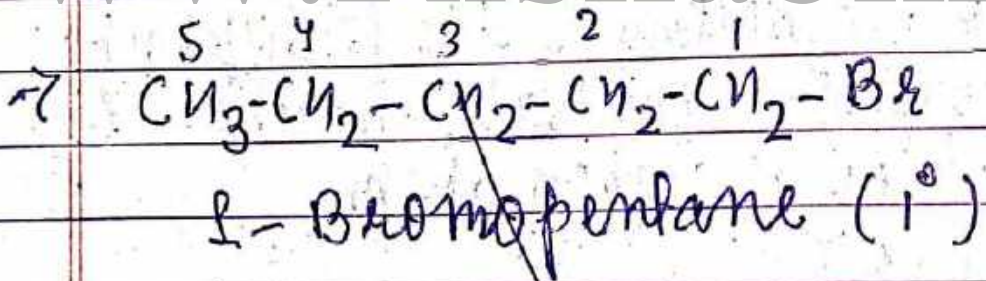 5 4 3 2 1
→ CH3-CH2-CH2-CH2-CH2-Br
1-Bromopentane (1°)